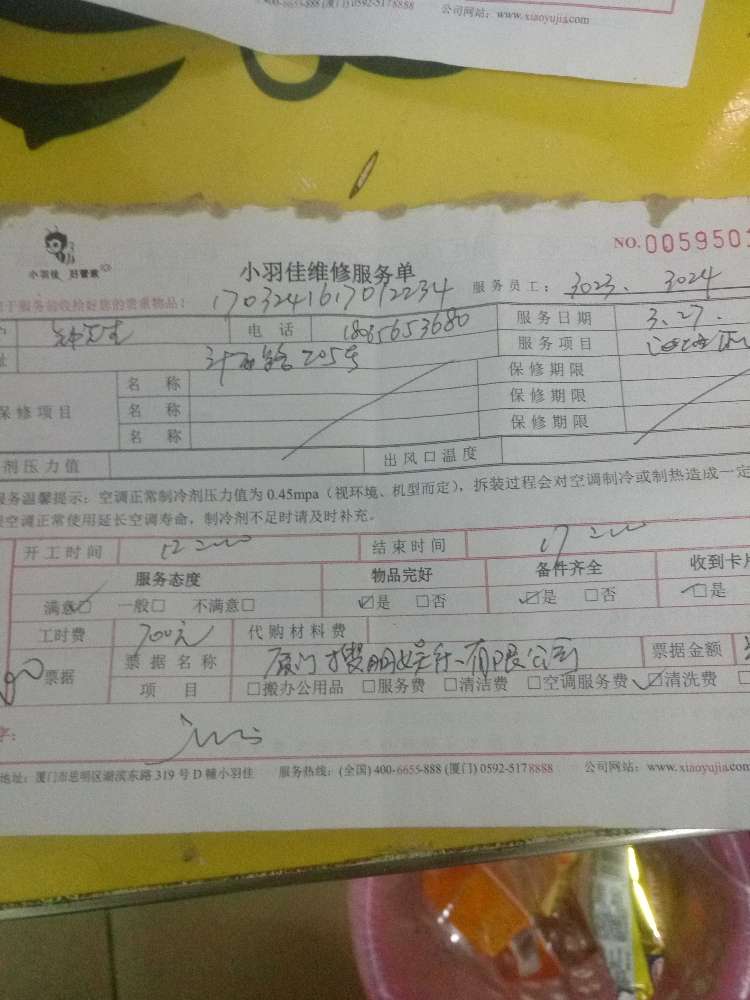 400-6655-888 (厦门) 0592-5178888 公司网站：www.xiaoyujia.com
小羽佳 好管家
小羽佳维修服务单
NO.0059501
于服务前收拾好您的贵重物品！ 1703241617012234 服务员工：3023、3024
电话 18065653680 服务日期 3.27.
址 205号 服务项目
保修项目 名称 保修期限
名称 保修期限
名称 保修期限
剂压力值 出风口温度
服务温馨提示：空调正常制冷剂压力值为0.45mpa（视环境、机型而定），拆装过程会对空调制冷或制热造成一定
空调正常使用延长空调寿命，制冷剂不足时请及时补充。
开工时间 12:00 结束时间 17:00
服务态度 物品完好 备件齐全 收到卡片
满意☑ 一般□ 不满意□ ☑是 □否 ☑是 □否 □是
工时费 700元 代购材料费
票据 票据名称 厦门 有限公司 票据金额
项目 □搬办公用品 □服务费 □清洁费 □空调服务费 ☑清洗费
字：
地址：厦门市思明区湖滨东路319号D幢小羽佳 服务热线：(全国) 400-6655-888 (厦门) 0592-5178888 公司网站：www.xiaoyujia.com